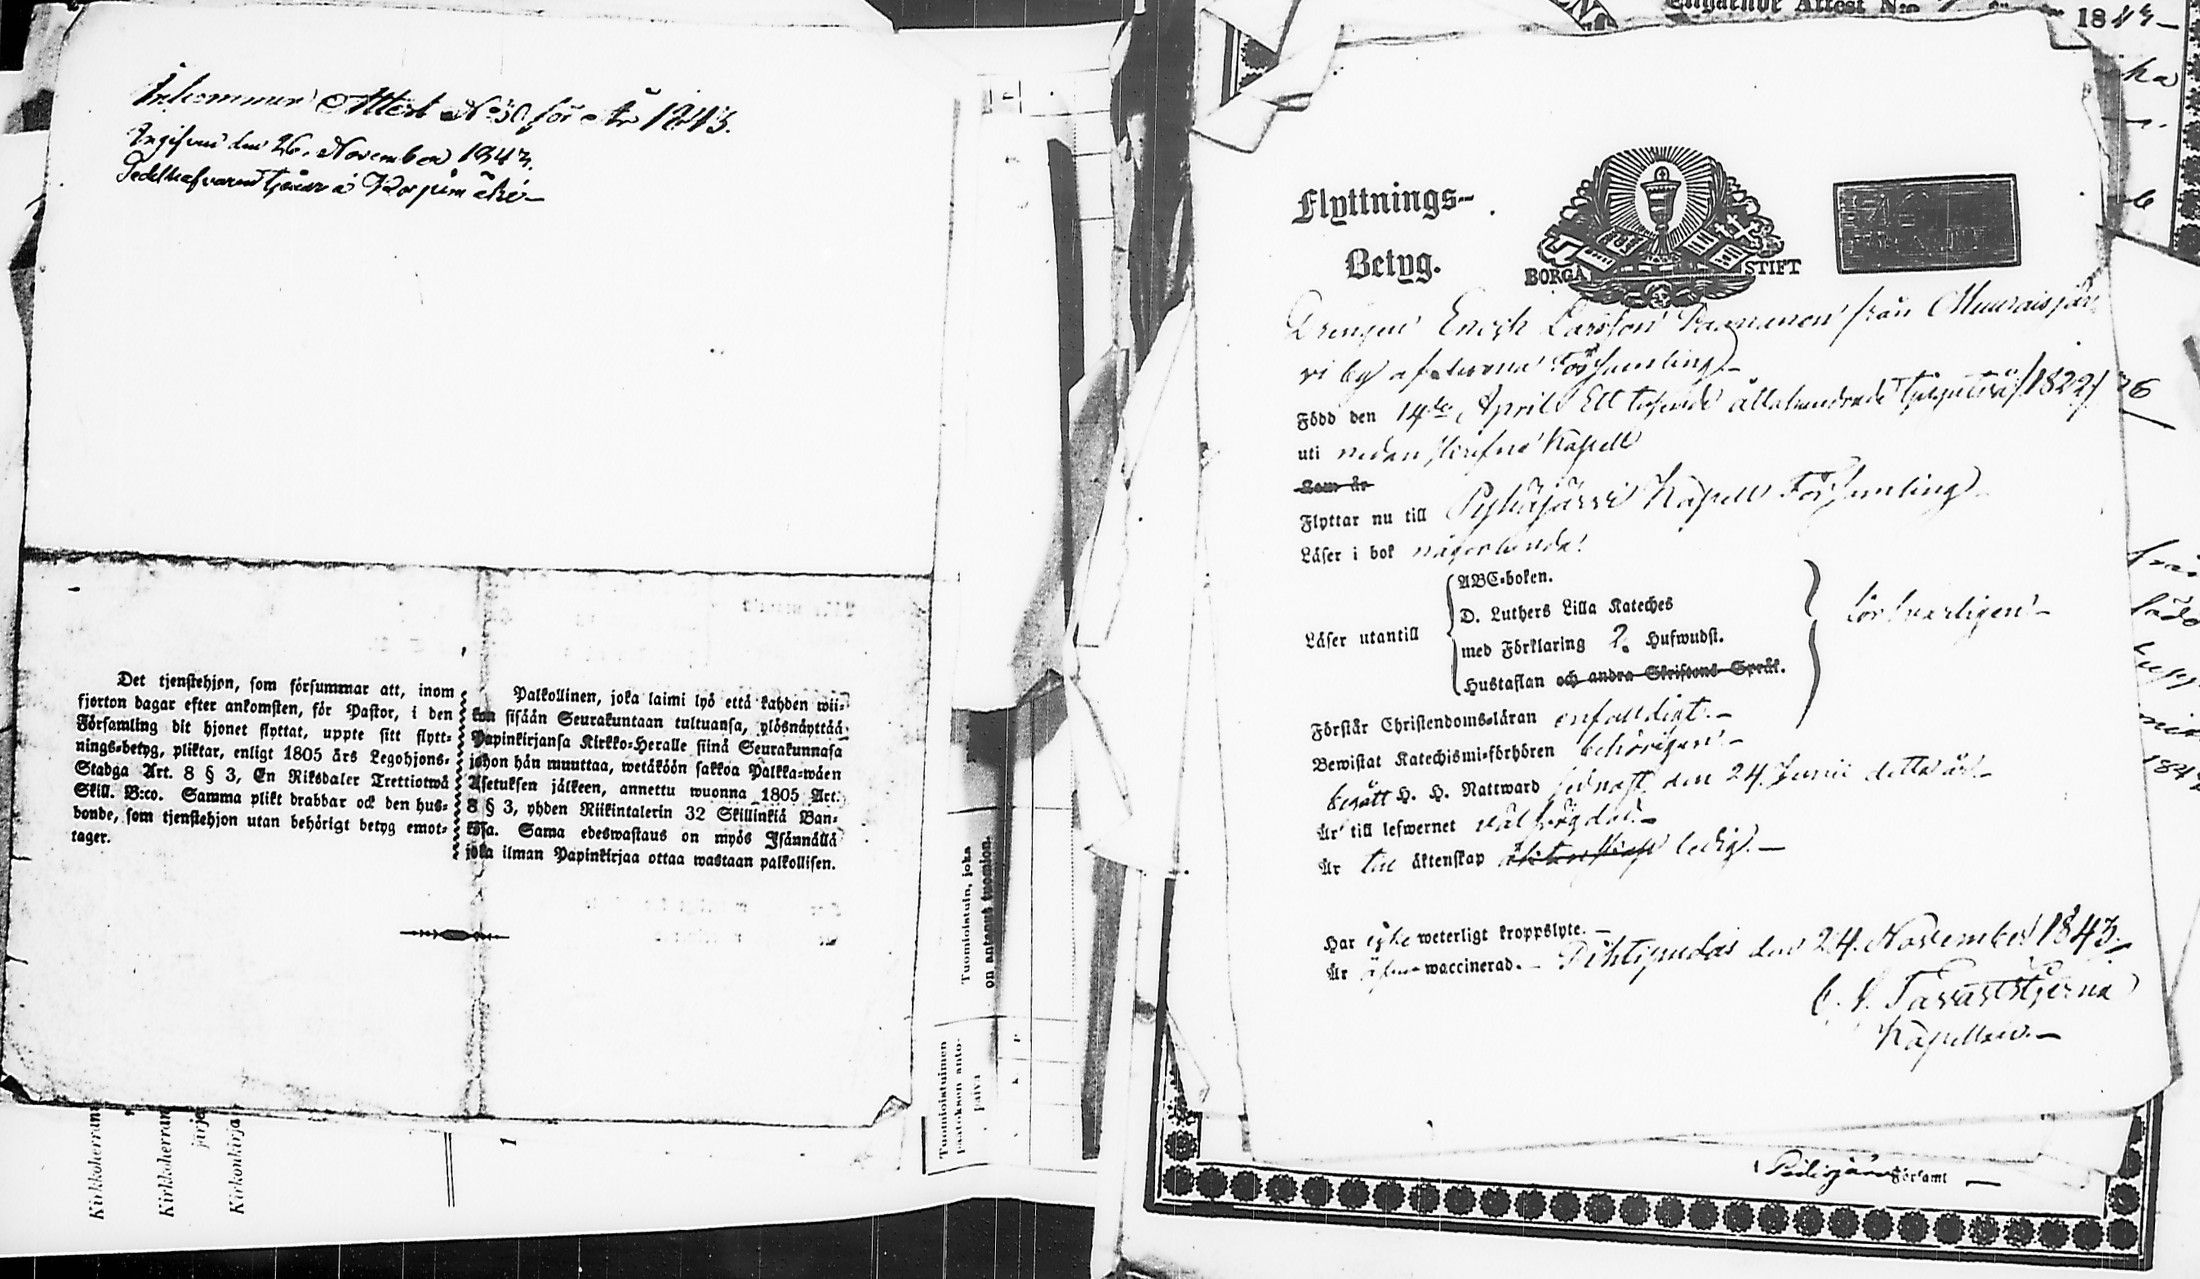 Inkommen Attest No 30 för År 1843.
Ingifven den 26. November 1843.
Sedelhafvaren tjenar å Korpimäki
Det tjenstehjon, som försummar att, inom
fjorton dagar efter ankomsten, för Pastor, i den
Församling dit hjonet flyttat, uppte sitt flytt-
nings-betyg, pliktar, enligt 1805 års Legohjons-
Stadga Art. 8 § 3, En Riksdaler Trettiotwå
Skill. B:co. Samma plikt drabbar ock den hus-
bonde, som tjenstehjon utan behörigt betyg emot-
tager.
Palkollinen, joka laimi lyö että kahden wii-
kon sisään Seurakuntaan tultuansa, ylösnäyttää
Papinkirjansa Kirkko-Heralle siinä Seurakunnasa
johon hän muuttaa, wetäköön sakkoa Palkka-wäen
Asetuksen jälkeen, annettu wuonna 1805 Art.
8 § 3, yhden Riikintalerin 32 Skillinkiä Ban-
kosa. Sama edeswastaus on myös Isännällä
joka ilman Papinkirjaa ottaa wastaan palkollisen.
Tuomioistuin, joka
on antanut tuomion.
Tuomioistuimen
päätöksen anto-
päivä
Kirkkoherran
Kirkkoherran
Kirkonkirja
1
Attest N:o 1843
Flyttnings-
Betyg.
BORGÅ STIFT
Drengen Enoch Larsson Paananen från Muuraisjär
vi by af denna Församling
Född den 14de April Ett tusende åttahundrade tjugutvå /1822/
uti nedanskrefne Kapell
Som är
Flyttar nu till Pyhäjärvi Kapell Församling
Läser i bok någorlunda
Läser utantill
ABC-boken.
D. Luthers Lilla Kateches
med Förklaring 2. Hufwudst.
Hustaflan och andra Skriftens Språk.
försvarligen
Förstår Christendoms-läran enfaldigt.
Bewistat Katechismi-förhören behörigen
begått H. H. Nattward sednast den 24. Junii detta år
Är till lefwernet välfrägdad
Är till äktenskap ledig.
Har icke weterligt kroppslyte.
Är äfven waccinerad. Pihtipudas den 24. November 1843
C. H. Tavaststjerna
Kapellan
Förs:amt